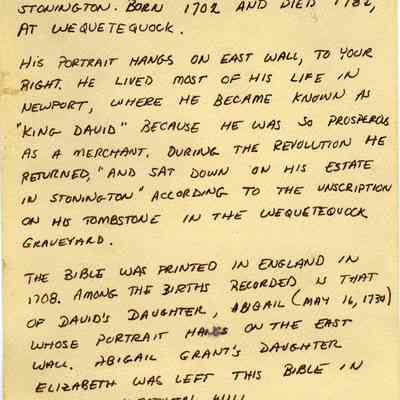 STONINGTON. BORN 1702 AND DIED 1782,
AT WEQUETEQUOCK.
HIS PORTRAIT HANGS ON EAST WALL, TO YOUR
RIGHT. HE LIVED MOST OF HIS LIFE IN
NEWPORT, WHERE HE BECAME KNOWN AS
"KING DAVID" BECAUSE HE WAS SO PROSPEROUS
AS A MERCHANT. DURING THE REVOLUTION HE
RETURNED, "AND SAT DOWN ON HIS ESTATE
IN STONINGTON" ACCORDING TO THE UNSCRIPTION
ON HIS TOMBSTONE IN THE WEQUETEQUOCK
GRAVEYARD.
THE BIBLE WAS PRINTED IN ENGLAND IN
1708. AMONG THE BIRTHS RECORDED IS THAT
OF DAVID'S DAUGHTER, ABIGAIL (MAY 16, 1730)
WHOSE PORTRAIT HANGS ON THE EAST
WALL. ABIGAIL GRANT'S DAUGHTER
ELIZABETH WAS LEFT THIS BIBLE IN
WILL